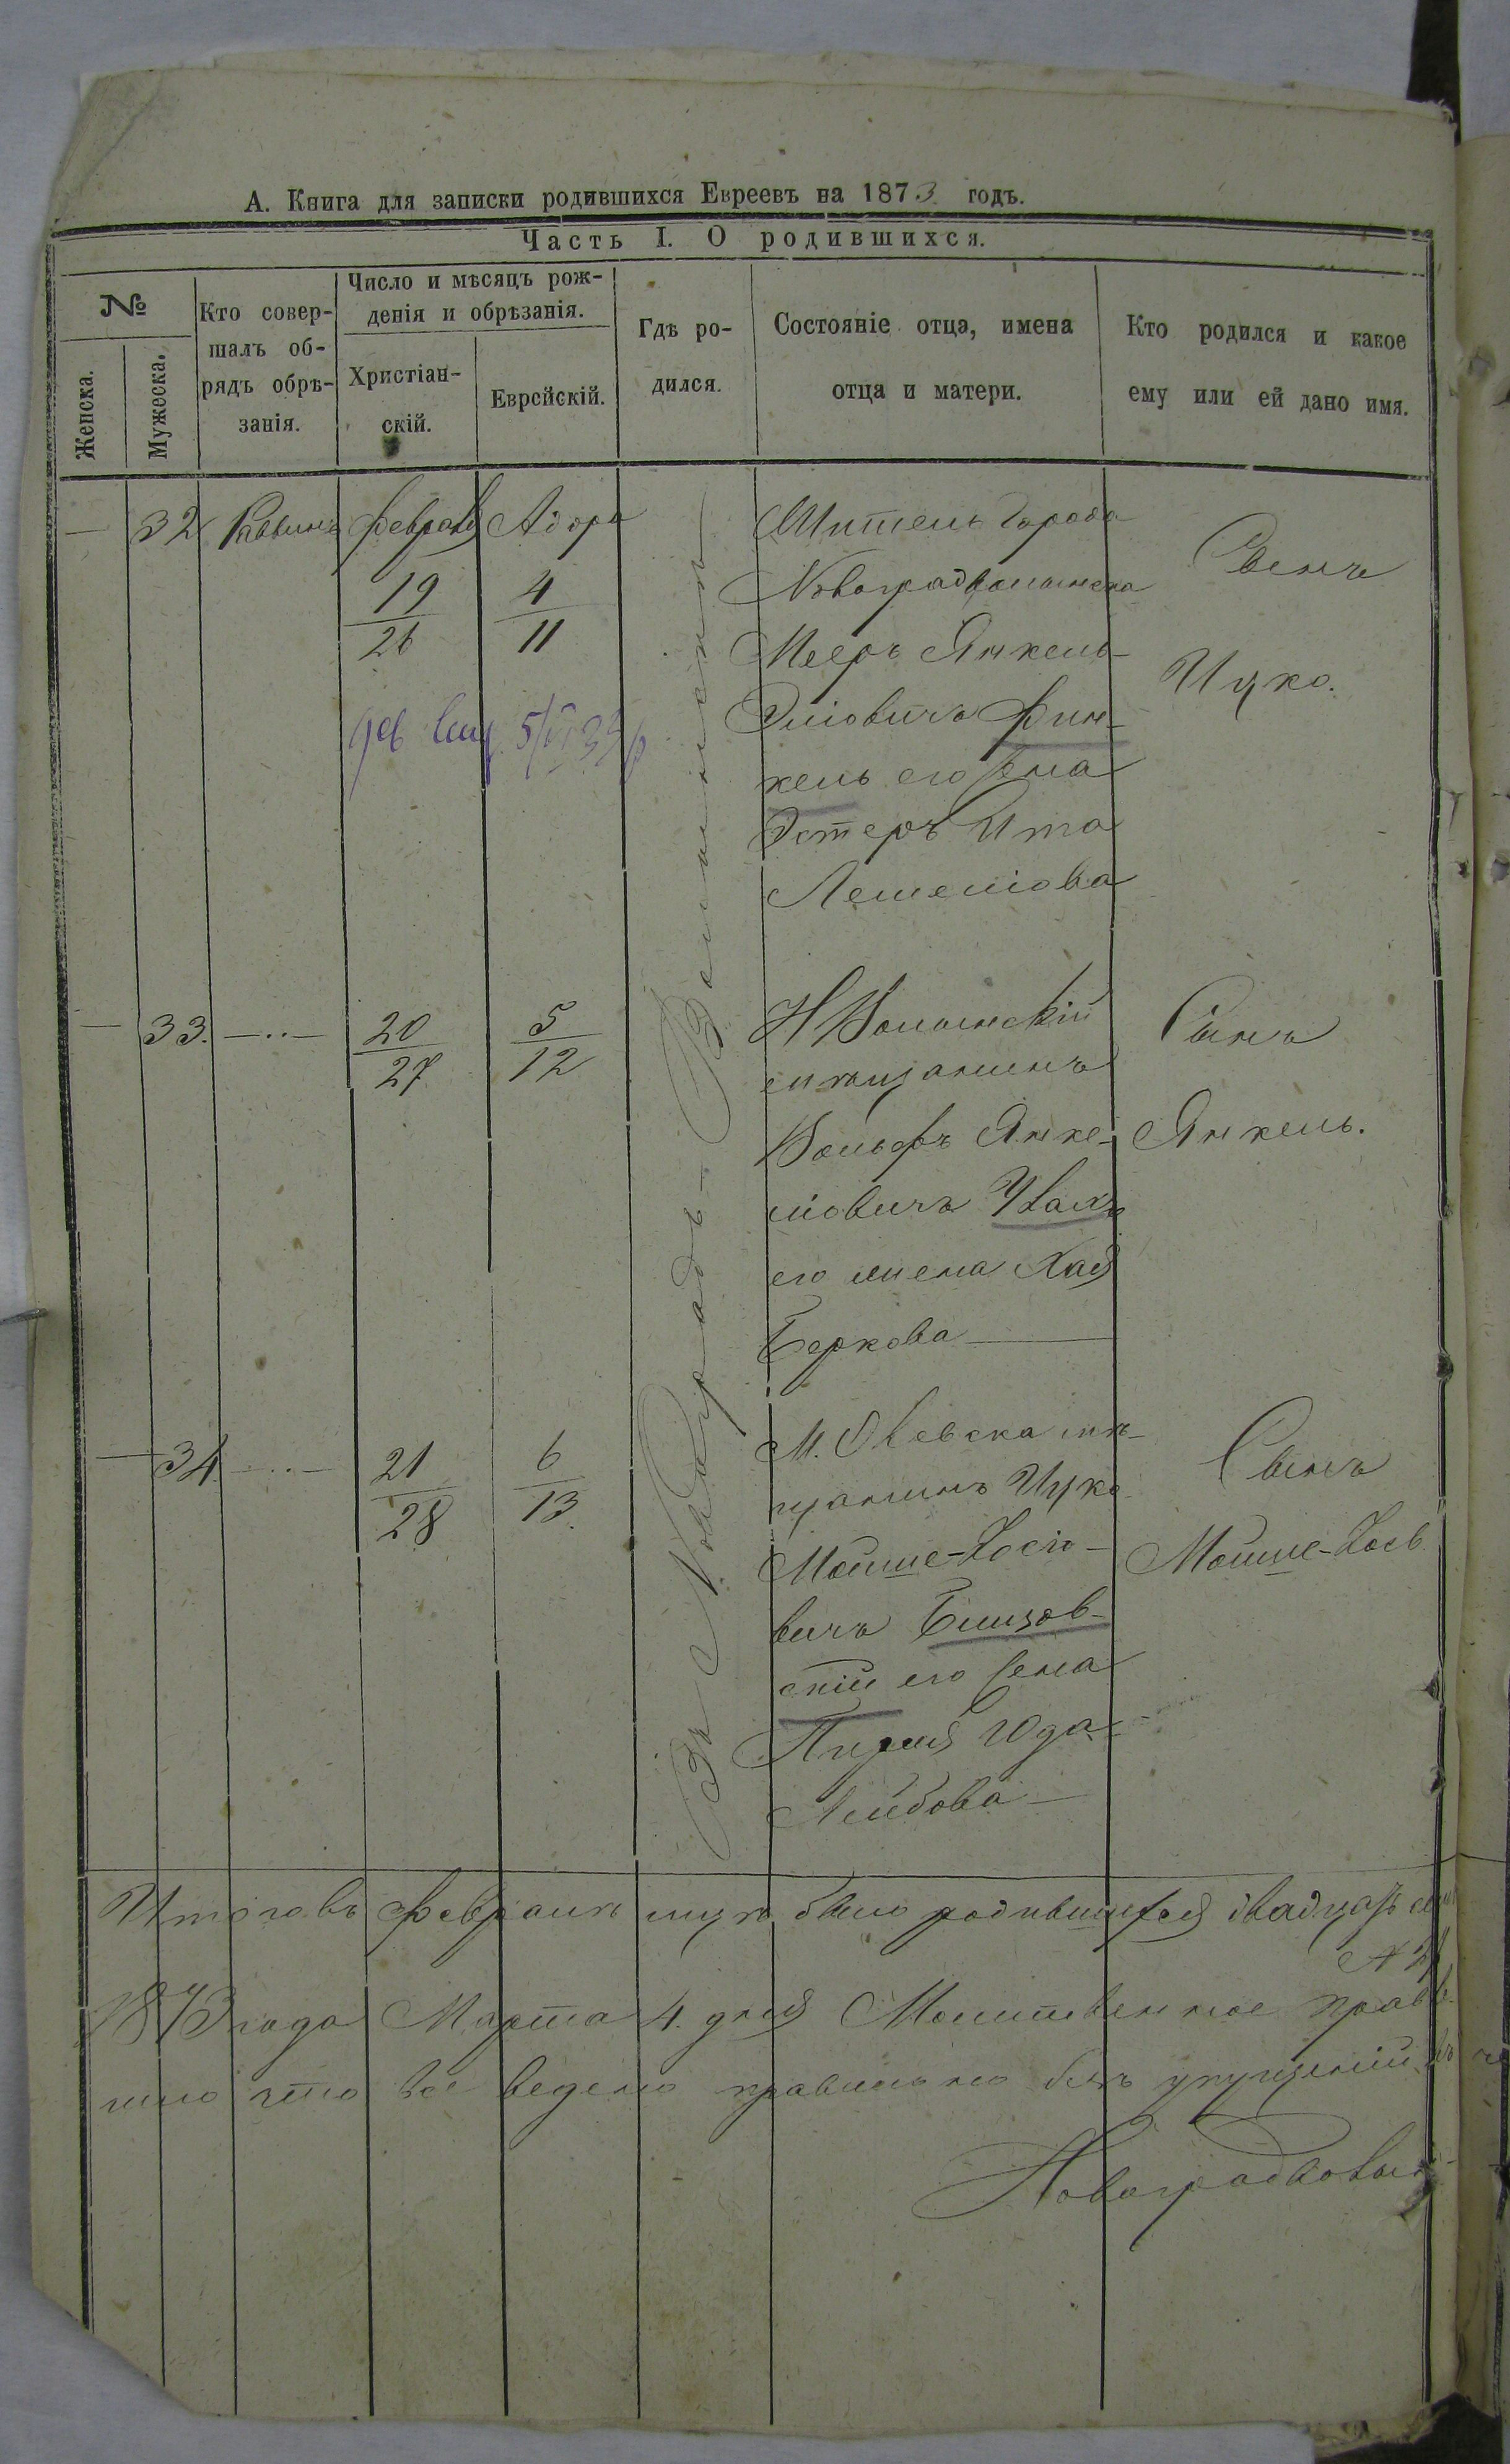 А. Книга для записки родившихся Евреевъ на 1873 годъ.
Часть I. О родившихся.
№
Женска.
Мужеска.
Кто совер-
шалъ об-
рядъ обрѣ-
занія.
Число и мѣсяцъ рож-
денія и обрѣзанія.
Христіан-
скій.
Еврейскій.
Гдѣ ро-
дился.
Состояніе отца, имена
отца и матери.
Кто родился и какое
ему или ей дано имя.
— 32 Раввинъ Февраля Адора
19 4
26 11
Въ г. Новоградъ-Волынскѣ
Житель города
Новоградволынска
Мееръ Янкель-
Эліовичъ Фин-
кель его жена
Эстеръ Ита
Лешеліова
Сынъ
Ицко.
5/VI 33
— 33. —··—
20 5
27 12
НВолынскій
мѣщанинъ
Вольфъ Янке-
ліовичъ
его жена Хая
Беркова
Сынъ
Янкель.
— 34 —··—
21 6
28 13.
М. Олевска мѣ-
щанинъ Ицко
Мойше-Іосіо-
вичъ
скій его жена
Юда-
Лейбова
Сынъ
Мойше-Іось
Итого въ Февралѣ мцѣ было родившихся двадцать
1873 года Марта 4. дня Молитвенное прав
что все ведено правильно безъ упущеній
Новоградволын